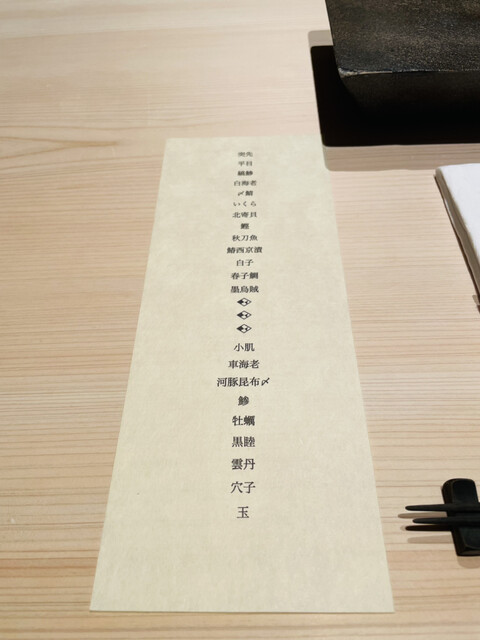 突先
平目
縞鯵
白海老
〆鯖
いくら
北寄貝
鰹
秋刀魚
鰆西京漬
白子
春子鯛
墨烏賊
小肌
車海老
河豚昆布〆
鯵
牡蠣
黒睦
雲丹
穴子
玉